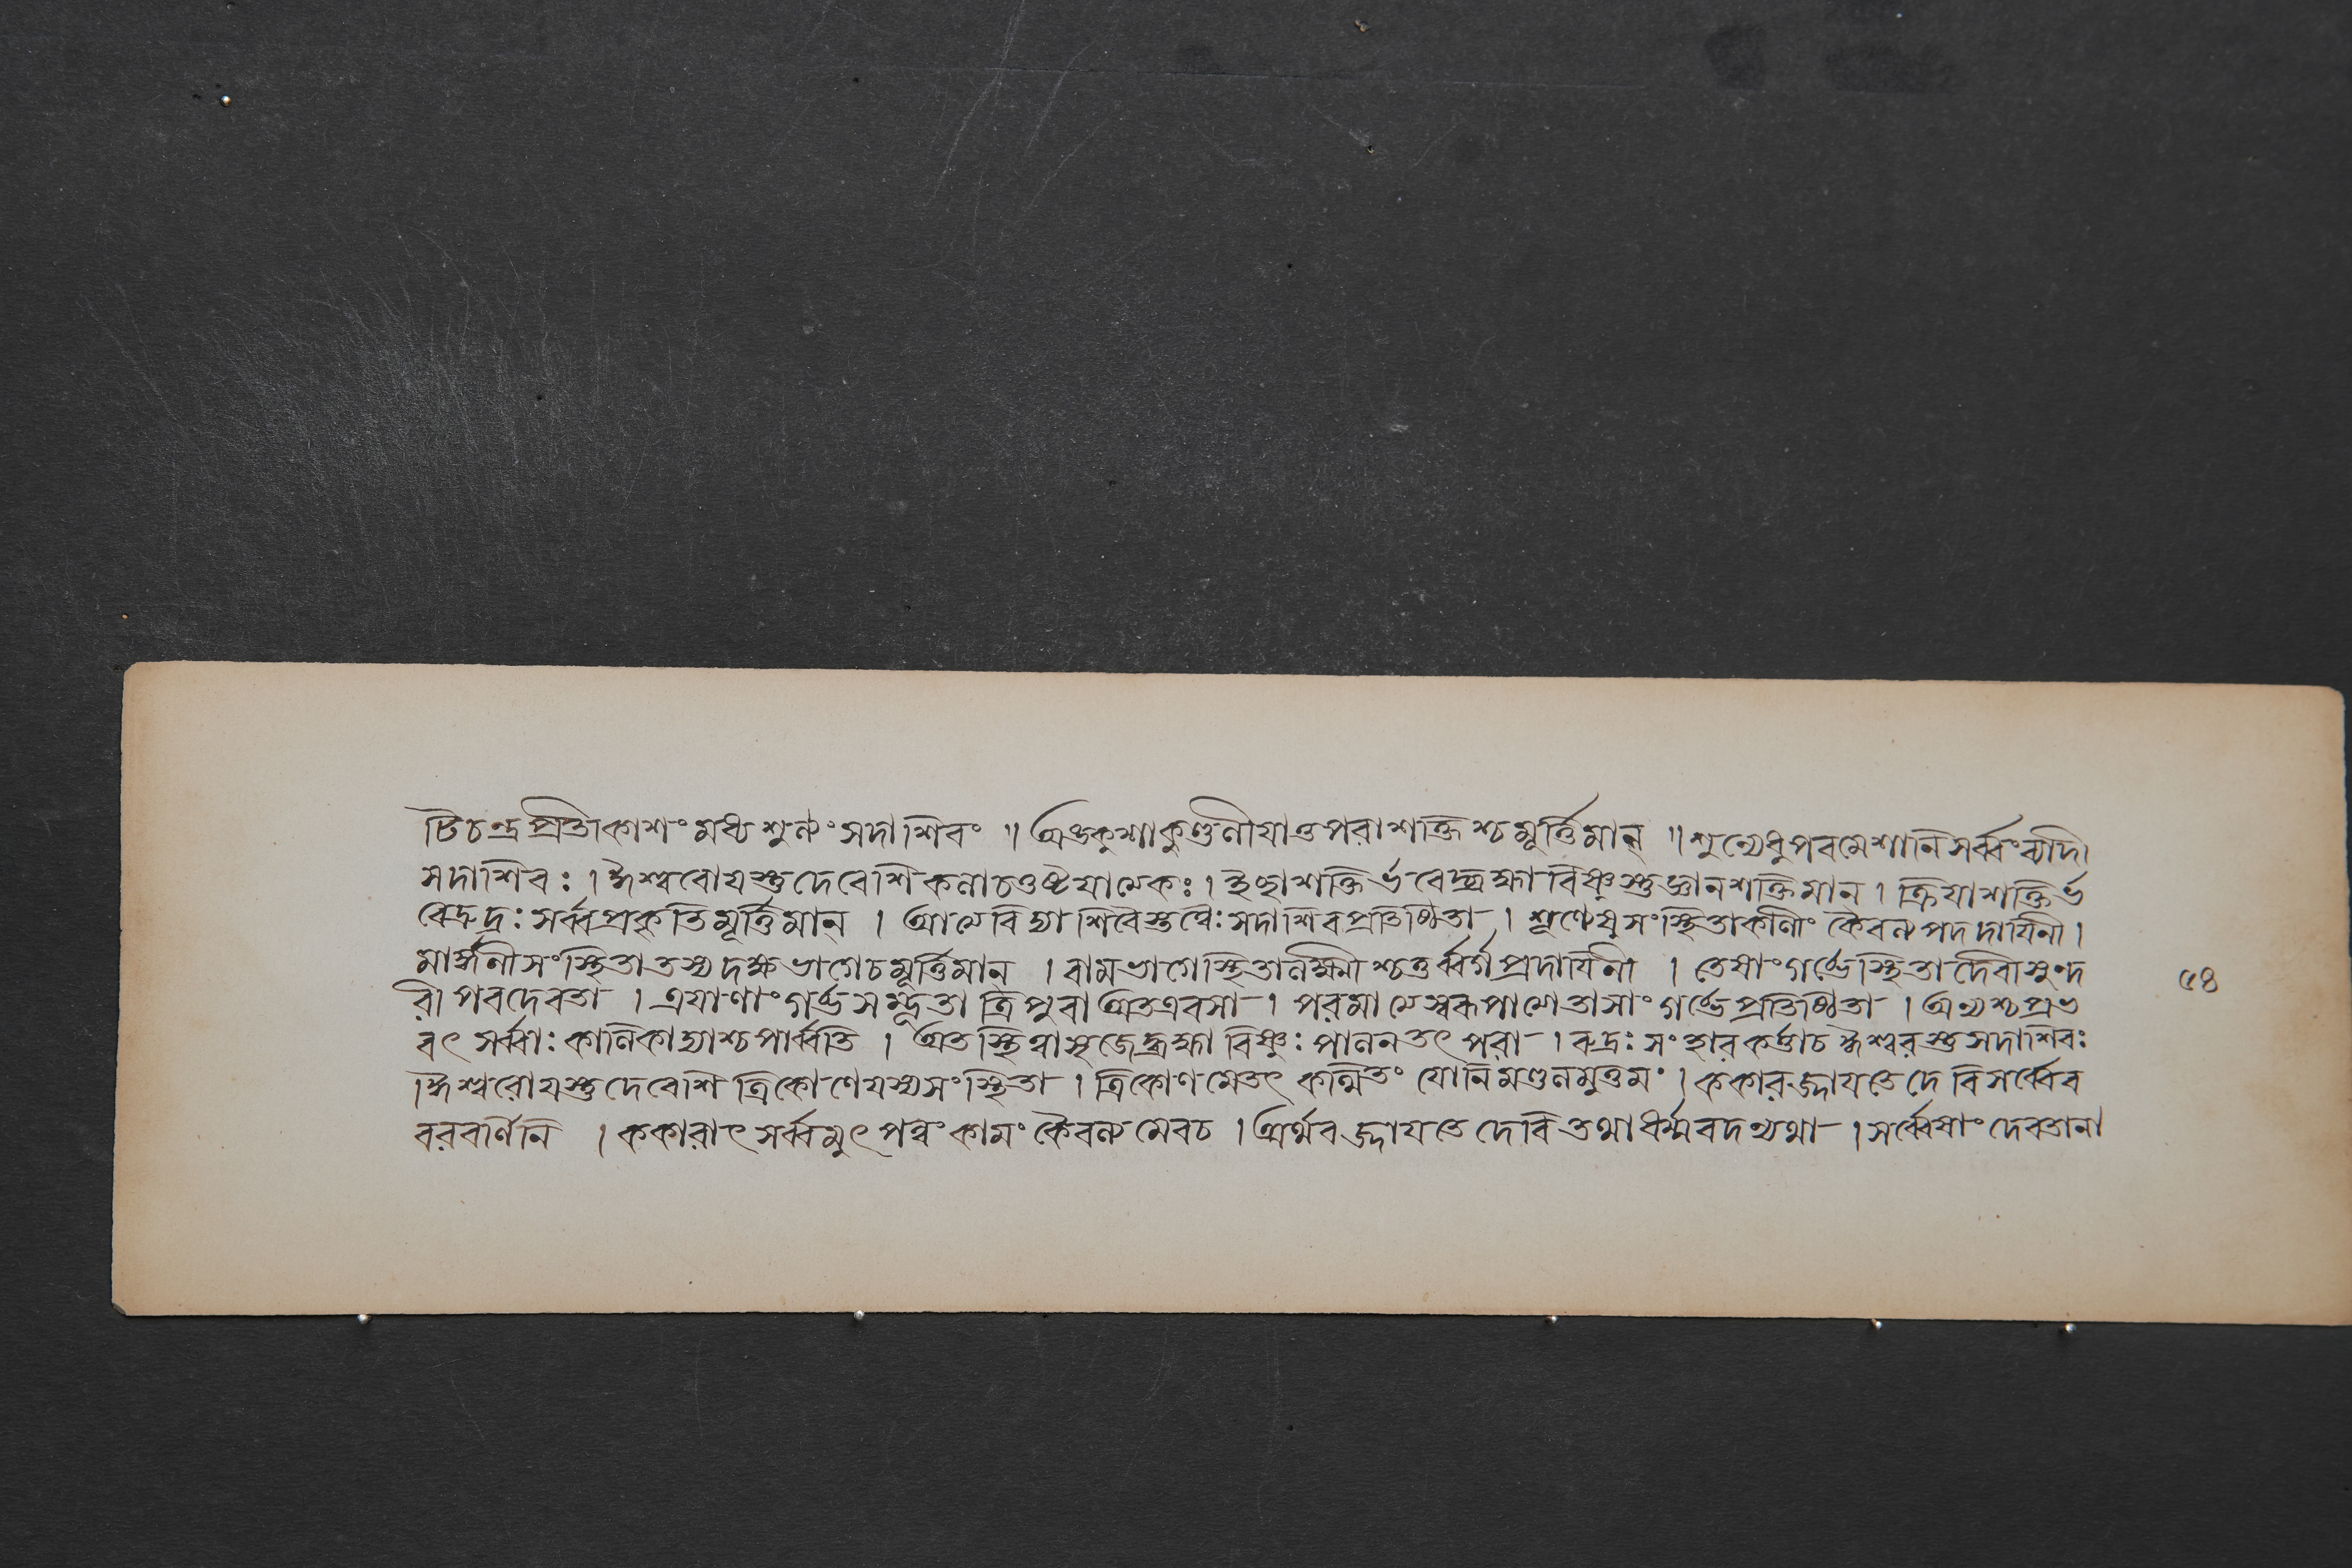 টিচন্দ্রপ্রতীকাশং মধ্যশূন্যং সদাশিবং ॥ অঙ্কুশাকুণ্ডলীযাতুপরাশক্তিশ্চমূর্ত্তিমান্ ॥ শূন্যেষুপরমেশানি সর্ব্বং
সদাশিবঃ । ঈশ্বরোযস্তুদেবেশি কলাচতুষ্টযাত্মকঃ । ইচ্ছাশক্তির্ভবেদ্ব্রহ্মাবিষ্ণুস্তুজ্ঞানশক্তিমান্ । ক্রিযাশক্তির্ভ
বেদ্রুদ্রঃ সর্ব্বপ্রকৃতিমূর্ত্তিমান্ । আত্মবিদ্যাশিবৈস্তত্ত্বৈঃ সদাশিবপ্রতিষ্ঠিতা । শূণ্যেষুসংস্থিতাকালী কৈবল্যপদদাযিনী ।
সংস্থিতা তস্যদক্ষভাগেচমূর্ত্তিমান্ । বামভাগেস্থিতালক্ষ্মীশ্চতুর্ব্বর্গপ্রদাযিনী । তেষাংগর্ভেস্থিতাদেবীসুন্দ
রী পরদেবতা । এষাণাংগর্ভসম্ভূতা ত্রিপুরা অতএবসা । পরমাত্মস্বরূপাত্মেতাসাংগর্ভেপ্রতিষ্ঠিতা । অন্যশ্চপ্রভ
বৎ সর্ব্বাঃ কালিকাদ্যাশ্চপার্ব্বতি । অতস্থিত্বাসৃজেদ্ব্রহ্মা বিষ্ণুঃ পালনতৎপরা । রুদ্রঃ সংহারকর্ত্তাচ ঈশ্বরস্তুসদাশিবঃ
ঈশ্বরোযস্তুদেবেশি ত্রিকোণেযস্যসংস্থিতা । ত্রিকোণমেতৎ কল্পিতং যোনিমণ্ডলমুত্তমং । ককারজ্জাযতেদেবি সর্ব্বেব
বরবর্ণিনি । ককারাৎ সর্ব্বমুৎপন্নং কামং কৈবল্যমেবচ । অর্থবজ্জাযতে দেবি তথাধর্ম্মবদন্যথা । সর্ব্বেষাং দেবতানা
৫৪